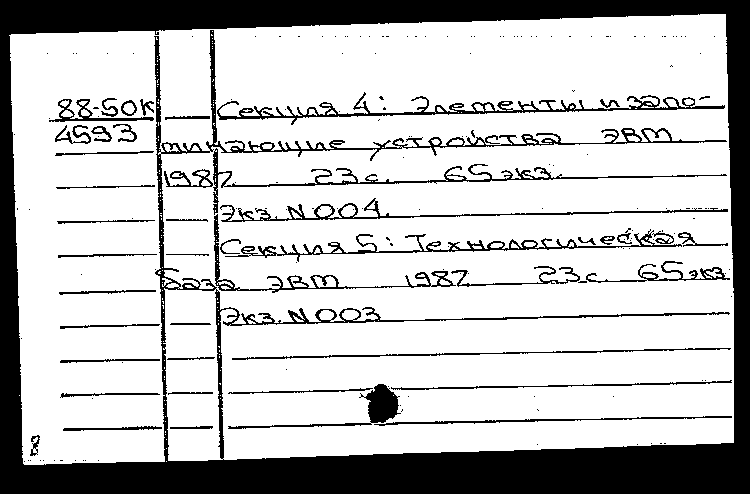 88-50к Секция 4: Элементы и запо-
4593 минающие устройства ЭВМ.
1987. 23с. 65 экз.
Экз. N 004.
Секция 5: Технологическая
база ЭВМ 1987 23с. 65 экз
Экз. N 003
8